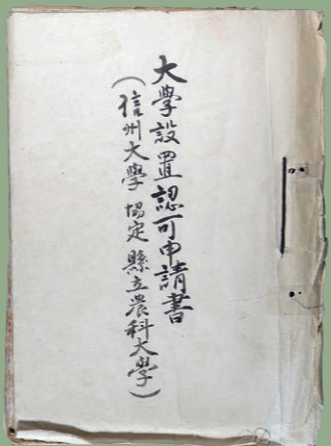 大學設置認可申請書
(信州大學協定縣立農科大學)